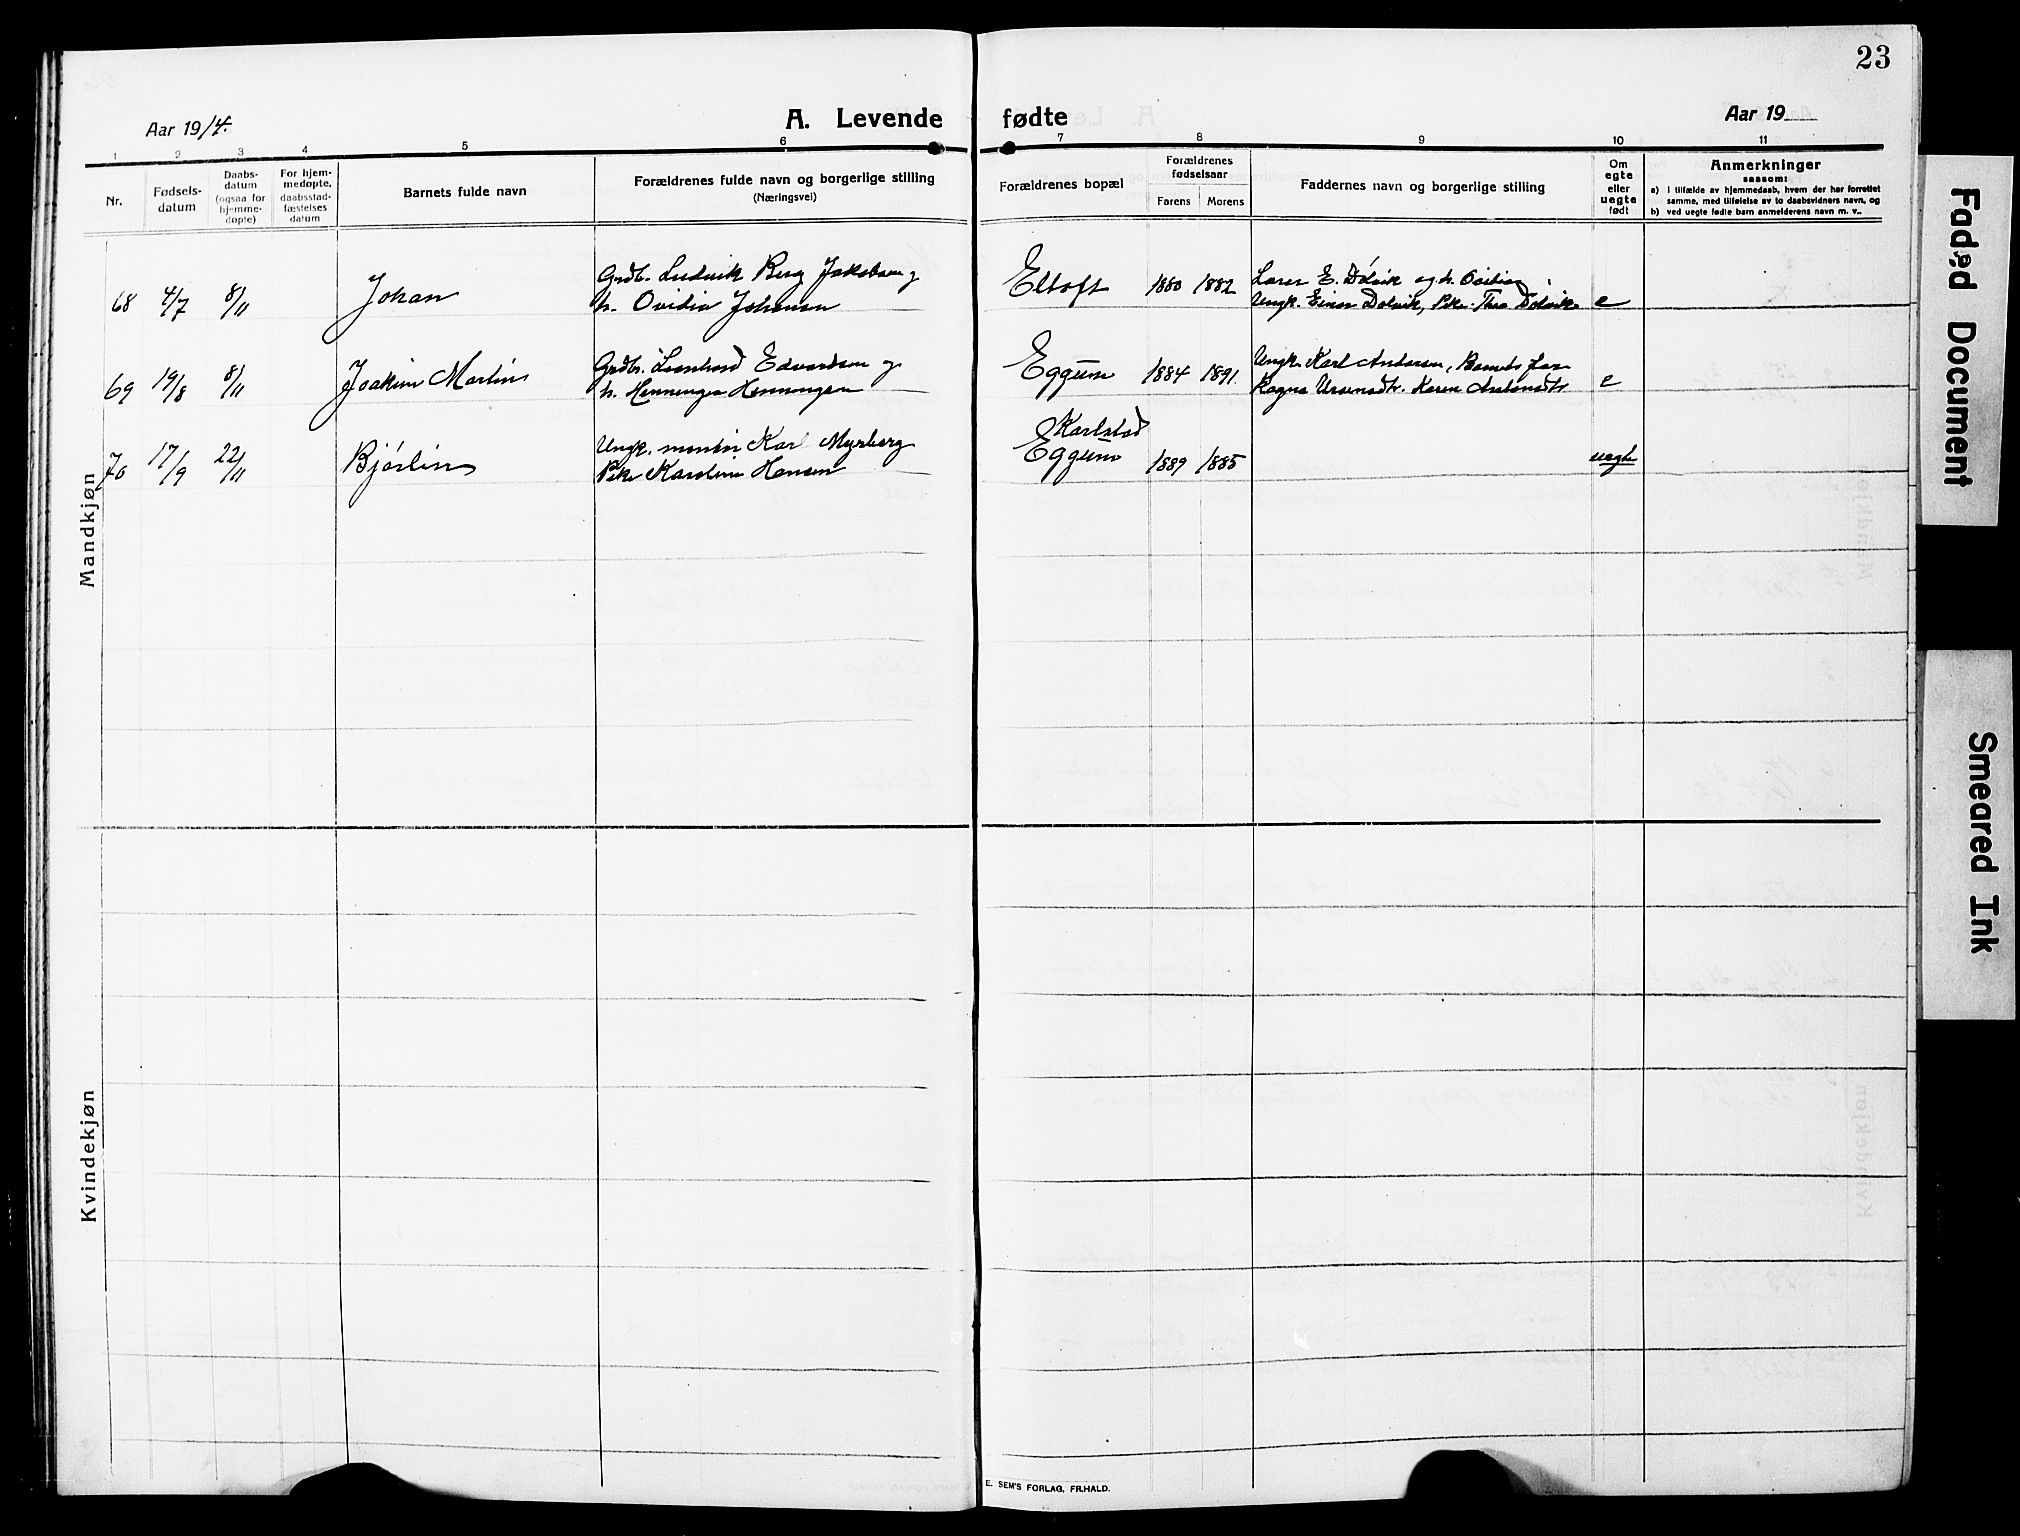 23
Aar 1914.
A. Levende fødte
Aar 19
1 2 3 4 5 6 7 8 9 10 11
Nr.
Fødsels-
datum
Daabs-
datum
(ogsaa for
hjemme-
døpte)
For hjem-
medøpte,
daabsstad-
fæstelses
datum
Barnets fulde navn
Forældrenes fulde navn og borgerlige stilling
(Næringsvei)
Forældrenes bopæl
Forældrenes
fødselsaar
Farens Morens
Faddernes navn og borgerlige stilling
Om
egte
eller
uegte
født
Anmerkninger
saasom:
a) i tilfælde av hjemmedaab, hvem der har forrettet
samme, med tilføielse av to daabsvidners navn, og
b) ved uegte fødte barn anmelderens navn m. v..
Mandkjøn
68 4/7 8/11 Johan
Grdb. Ludvik Berg Jakobsen og
h. Ovidia Johansen
Eltoft 1880 1882
Lærer E. Dølvik og h. Ovidia,
Ungk. Einar Dølvik, Pike Thea Dølvik
e
69 19/8 8/11 Joakim Martin
Grdb. Leonhard Edvardsen og
h. Henninga Henningsen
Eggum 1884 1891.
Ungk. Karl Andersen, Barnets far
Ragna Karen
e
70 17/9 22/11 Bjørlin
Ungk. montør Karl Myrberg
Pike Karoline Hansen
Karlstad
Eggum 1889 1885
uegte
Kvindekjøn
E. SEM'S FORLAG, FR.HALD.
Faded Document
Smeared Ink